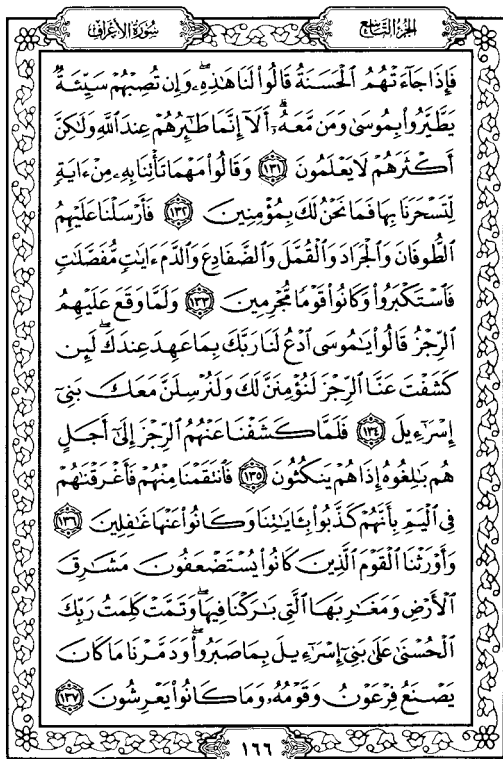 الجزء التاسع
سورة الأعراف
فَإِذَا جَآءَتۡهُمُ ٱلۡحَسَنَةُ قَالُواْ لَنَا هَٰذِهِۦۖ وَإِن تُصِبۡهُمۡ سَيِّئَةٞ
يَطَّيَّرُواْ بِمُوسَىٰ وَمَن مَّعَهُۥٓۗ أَلَآ إِنَّمَا طَٰٓئِرُهُمۡ عِندَ ٱللَّهِ وَلَٰكِنَّ
أَكۡثَرَهُمۡ لَا يَعۡلَمُونَ ١٣١ وَقَالُواْ مَهۡمَا تَأۡتِنَا بِهِۦ مِنۡ ءَايَةٖ
لِّتَسۡحَرَنَا بِهَا فَمَا نَحۡنُ لَكَ بِمُؤۡمِنِينَ ١٣٢ فَأَرۡسَلۡنَا عَلَيۡهِمُ
ٱلطُّوفَانَ وَٱلۡجَرَادَ وَٱلۡقُمَّلَ وَٱلضَّفَادِعَ وَٱلدَّمَ ءَايَٰتٖ مُّفَصَّلَٰتٖ
فَٱسۡتَكۡبَرُواْ وَكَانُواْ قَوۡمٗا مُّجۡرِمِينَ ١٣٣ وَلَمَّا وَقَعَ عَلَيۡهِمُ
ٱلرِّجۡزُ قَالُواْ يَٰمُوسَى ٱدۡعُ لَنَا رَبَّكَ بِمَا عَهِدَ عِندَكَۖ لَئِن
كَشَفۡتَ عَنَّا ٱلرِّجۡزَ لَنُؤۡمِنَنَّ لَكَ وَلَنُرۡسِلَنَّ مَعَكَ بَنِيٓ
إِسۡرَٰٓءِيلَ ١٣٤ فَلَمَّا كَشَفۡنَا عَنۡهُمُ ٱلرِّجۡزَ إِلَىٰٓ أَجَلٍ
هُم بَٰلِغُوهُ إِذَا هُمۡ يَنكُثُونَ ١٣٥ فَٱنتَقَمۡنَا مِنۡهُمۡ فَأَغۡرَقۡنَٰهُمۡ
فِي ٱلۡيَمِّ بِأَنَّهُمۡ كَذَّبُواْ بِـَٔايَٰتِنَا وَكَانُواْ عَنۡهَا غَٰفِلِينَ ١٣٦
وَأَوۡرَثۡنَا ٱلۡقَوۡمَ ٱلَّذِينَ كَانُواْ يُسۡتَضۡعَفُونَ مَشَٰرِقَ
ٱلۡأَرۡضِ وَمَغَٰرِبَهَا ٱلَّتِي بَٰرَكۡنَا فِيهَاۖ وَتَمَّتۡ كَلِمَتُ رَبِّكَ
ٱلۡحُسۡنَىٰ عَلَىٰ بَنِيٓ إِسۡرَٰٓءِيلَ بِمَا صَبَرُواْۖ وَدَمَّرۡنَا مَا كَانَ
يَصۡنَعُ فِرۡعَوۡنُ وَقَوۡمُهُۥ وَمَا كَانُواْ يَعۡرِشُونَ ١٣٧
١٦٦